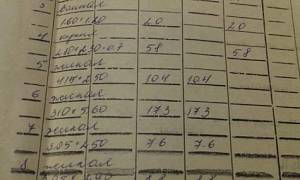 3 ванная
1.60×1.20 2.0 2.0
4 кухня
2.80×2.30-0.7 5.8 5.8
5 жилая
4.15×2.50 10.4 10.4
6 жилая
3.10×5.60 17.3 17.3
7 жилая
3.05×2.50 7.6 7.6
8 жилая